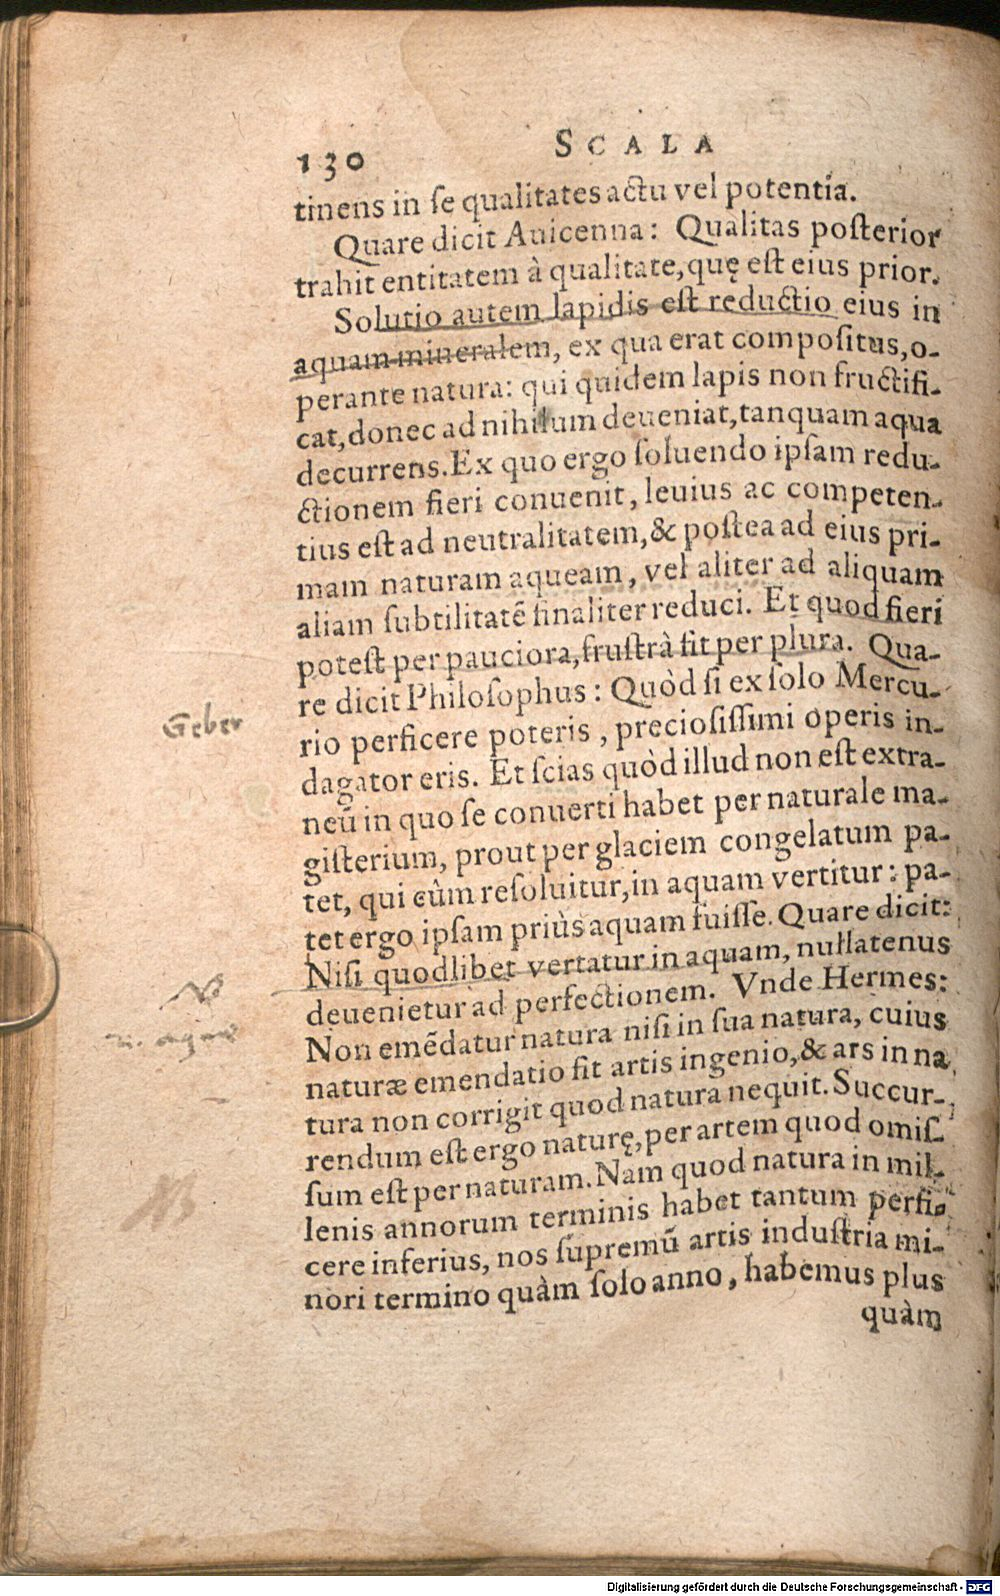 130 SCALA
tinens in ſe qualitates actu vel potentia.
Quare dicit Auicenna: Qualitas poſterior
trahit entitatem à qualitate, quę eſt eius prior.
Solutio autem lapidis eſt reductio eius in
aquam mineralem, ex qua erat compoſitus, o-
perante natura: qui quidem lapis non fructifi-
cat, donec ad nihilum deueniat, tanquam aqua
decurrens. Ex quo ergo ſoluendo ipſam redu-
ctionem fieri conuenit, leuius ac competen-
tius eſt ad neutralitatem, & poſtea ad eius pri-
mam naturam aqueam, vel aliter ad aliquam
aliam ſubtilitatē finaliter reduci. Et quod fieri
poteſt per pauciora, fruſtrà fit per plura. Qua-
re dicit Philoſophus: Quòd ſi ex ſolo Mercu-
Geber
rio perficere poteris, precioſiſſimi operis in-
dagator eris. Et ſcias quòd illud non eſt extra-
neū in quo ſe conuerti habet per naturale ma-
giſterium, prout per glaciem congelatum pa-
tet, qui cûm reſoluitur, in aquam vertitur: pa-
tet ergo ipſam priùs aquam fuiſſe. Quare dicit:
Niſi quodlibet vertatur in aquam, nullatenus
deuenietur ad perfectionem. Vnde Hermes:
Non emēdatur natura niſi in ſua natura, cuius
naturæ emendatio fit artis ingenio, & ars in na
tura non corrigit quod natura nequit. Succur-
rendum eſt ergo naturę, per artem quod omiſ-
ſum eſt per naturam. Nam quod natura in mil-
lenis annorum terminis habet tantum perfi-
cere inferius, nos ſupremū artis induſtria mi-
nori termino quàm ſolo anno, habemus plus
quàm
Digitalisierung gefördert durch die Deutsche Forschungsgemeinschaft - DFG